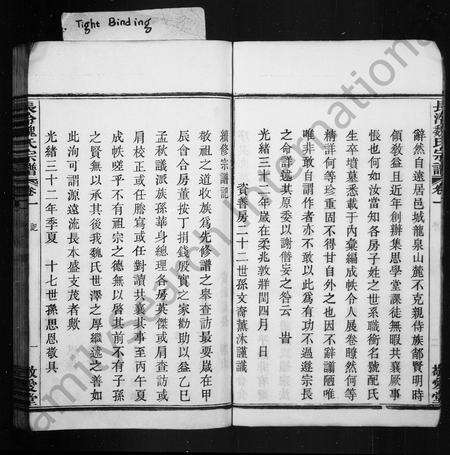 Tight Binding
長沙魏氏宗譜 卷一
辭然自遠居邑城龍泉山麓不克親侍族鄰賢明時
領敎益且近年創辦集思學堂課徒無暇共襄厥事
悵也何如汝當知各房子姓之世系職銜名號配氏
生卒墳墓悉載于內彙編成帙令人展卷瞭然何等
精詳何等珍重固不得甘自外之也因不辭譾陋唯
唯非敢自謂作者亦不敢以此為有功不過遵宗長
之命詳述其原委以謝僭妄之咎云爾
光緒三十二年歲在柔兆敦牂閏四月 日
資善房二十二世孫文齋薰沐謹識
敬愛堂
長沙魏氏宗譜 卷一 記
續修宗譜記
敬祖之道收族為先修譜之舉查訪最要歲在甲
辰會合房董按丁捐貲殷實之家勸助以益乙巳
孟秋議派族孫華身總理各房英傑或肩查訪或
肩校正或任謄寫或任對讀共襄其事至丙午夏
成帙嗟乎不有祖宗之德無以啓其前不有子孫
之賢無以承其後我魏氏世澤之厚繼述之善如
此洵可謂源遠流長本盛支茂者歟
光緒三十二年季夏 十七世孫思恩敬具
敬愛堂
familysearch international